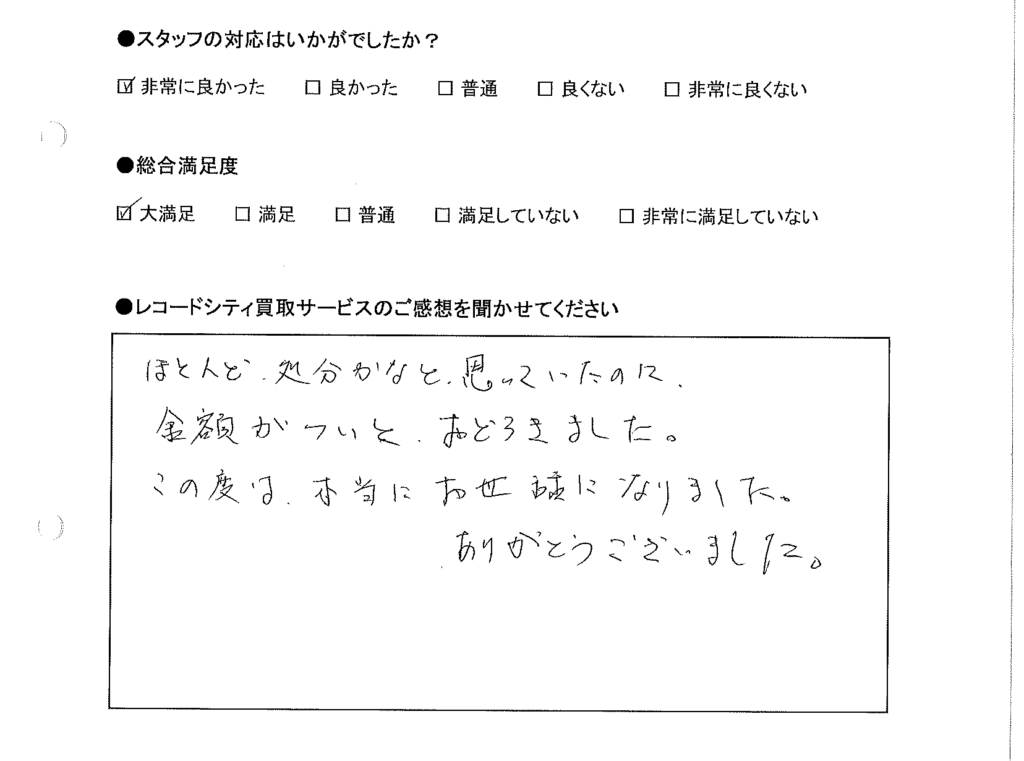 ●スタッフの対応はいかがでしたか？
☑ 非常に良かった □ 良かった □ 普通 □ 良くない □ 非常に良くない
●総合満足度
☑ 大満足 □ 満足 □ 普通 □ 満足していない □ 非常に満足していない
●レコードシティ買取サービスのご感想を聞かせてください
ほとんど、処分かなと、思っていたのに、
金額がついて、おどろきました。
この度は、本当にお世話様になりました。
ありがとうございました。